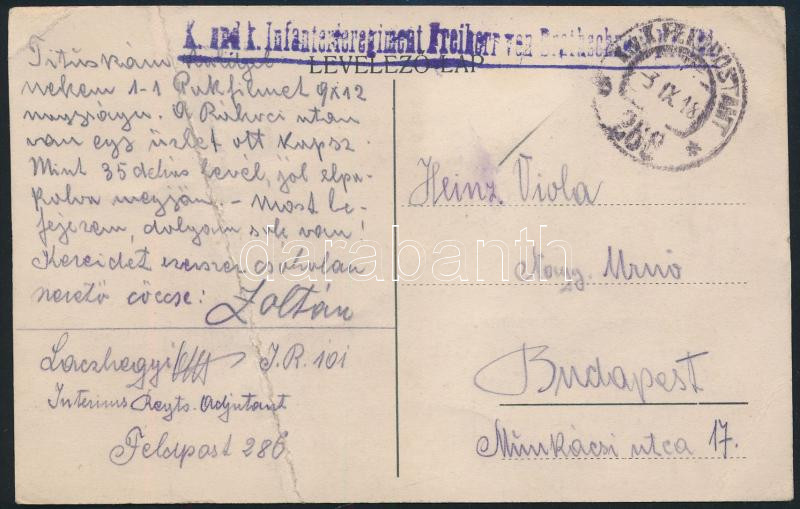 K. und k. Infanterieregiment Freiherr von
LEVELEZŐ-LAP
K.u.K. FELDPOSTAMT
3 IX 18
286
Tituskám küldjél
nekem 1-1 Pakfilmet 9x12
nagyságu. A Rákoci utan
van egy üzlet ott kapsz.
Mint 35 dekás levél, jól elpa-
kolva megjön. - Most be-
fejezem, dolgom sok van!
Kezeidet ezerszer csokolan
szerető öccse: Zoltán
Laczhegyi I.R. 101
Interims Regts. Adjutant
Feldpost 286
Heinz Viola
Nagy. Urnö
Budapest
Munkácsi utca 17.
darabanth.com